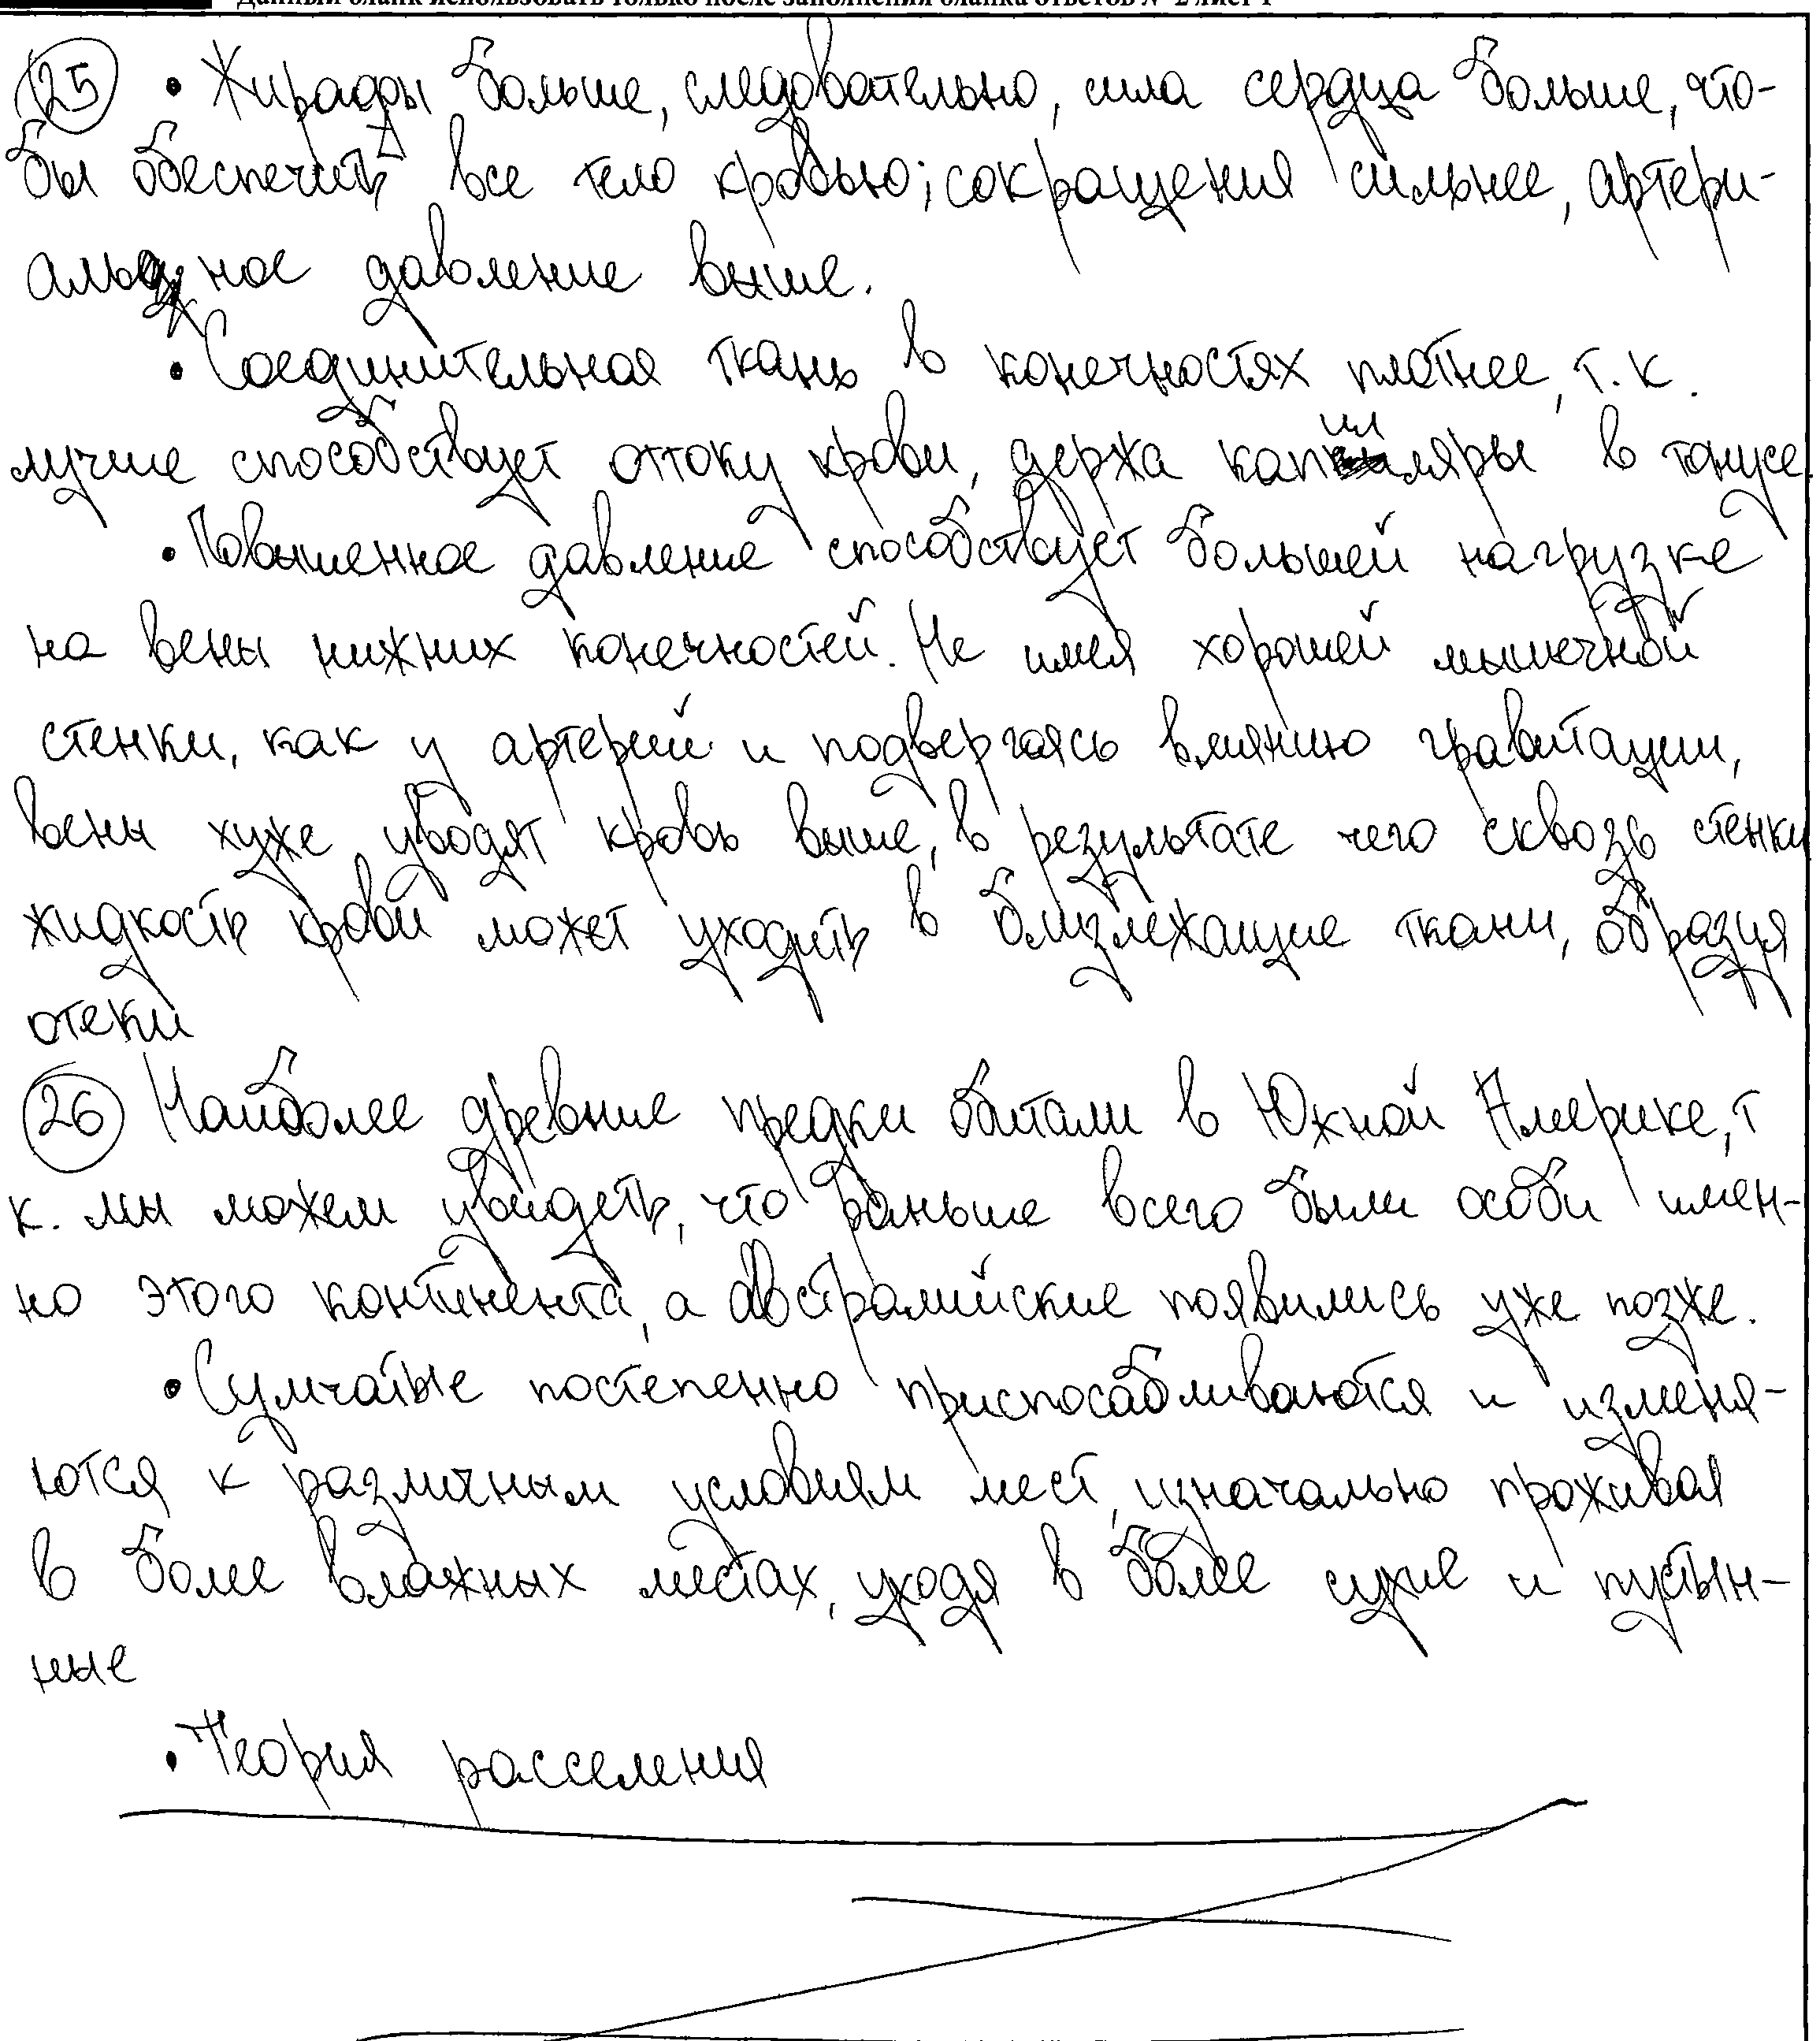 Данный бланк использовать только после заполнения бланка ответов № 2 лист 1
25 • Жирафы больше, следовательно, сила сердца больше, что-
бы обеспечить все тело кровью; сокращения сильнее, артери-
альное давление выше.
• Соединительная ткань в конечностях плотнее, т.к.
лучше способствует оттоку крови, держа капилляры в тонусе.
• Повышенное давление способствует большей нагрузке
на вены нижних конечностей. Не имея хорошей мышечной
стенки, как у артерий и подвергаясь влиянию гравитации,
вены хуже уводят кровь выше, в результате чего сквозь стенки
жидкость крови может уходить в близлежащие ткани, образуя
отеки
26 Наиболее древние предки обитали в Южной Америке, т
к. мы можем увидеть, что раньше всего были особи имен-
но этого континента, а австралийские появились уже позже.
• Сумчатые постепенно приспосабливаются и изменя-
ются к различным условиям мест, изначально проживая
в более влажных местах, уходя в более сухие и пустын-
ные
• Теория расселения